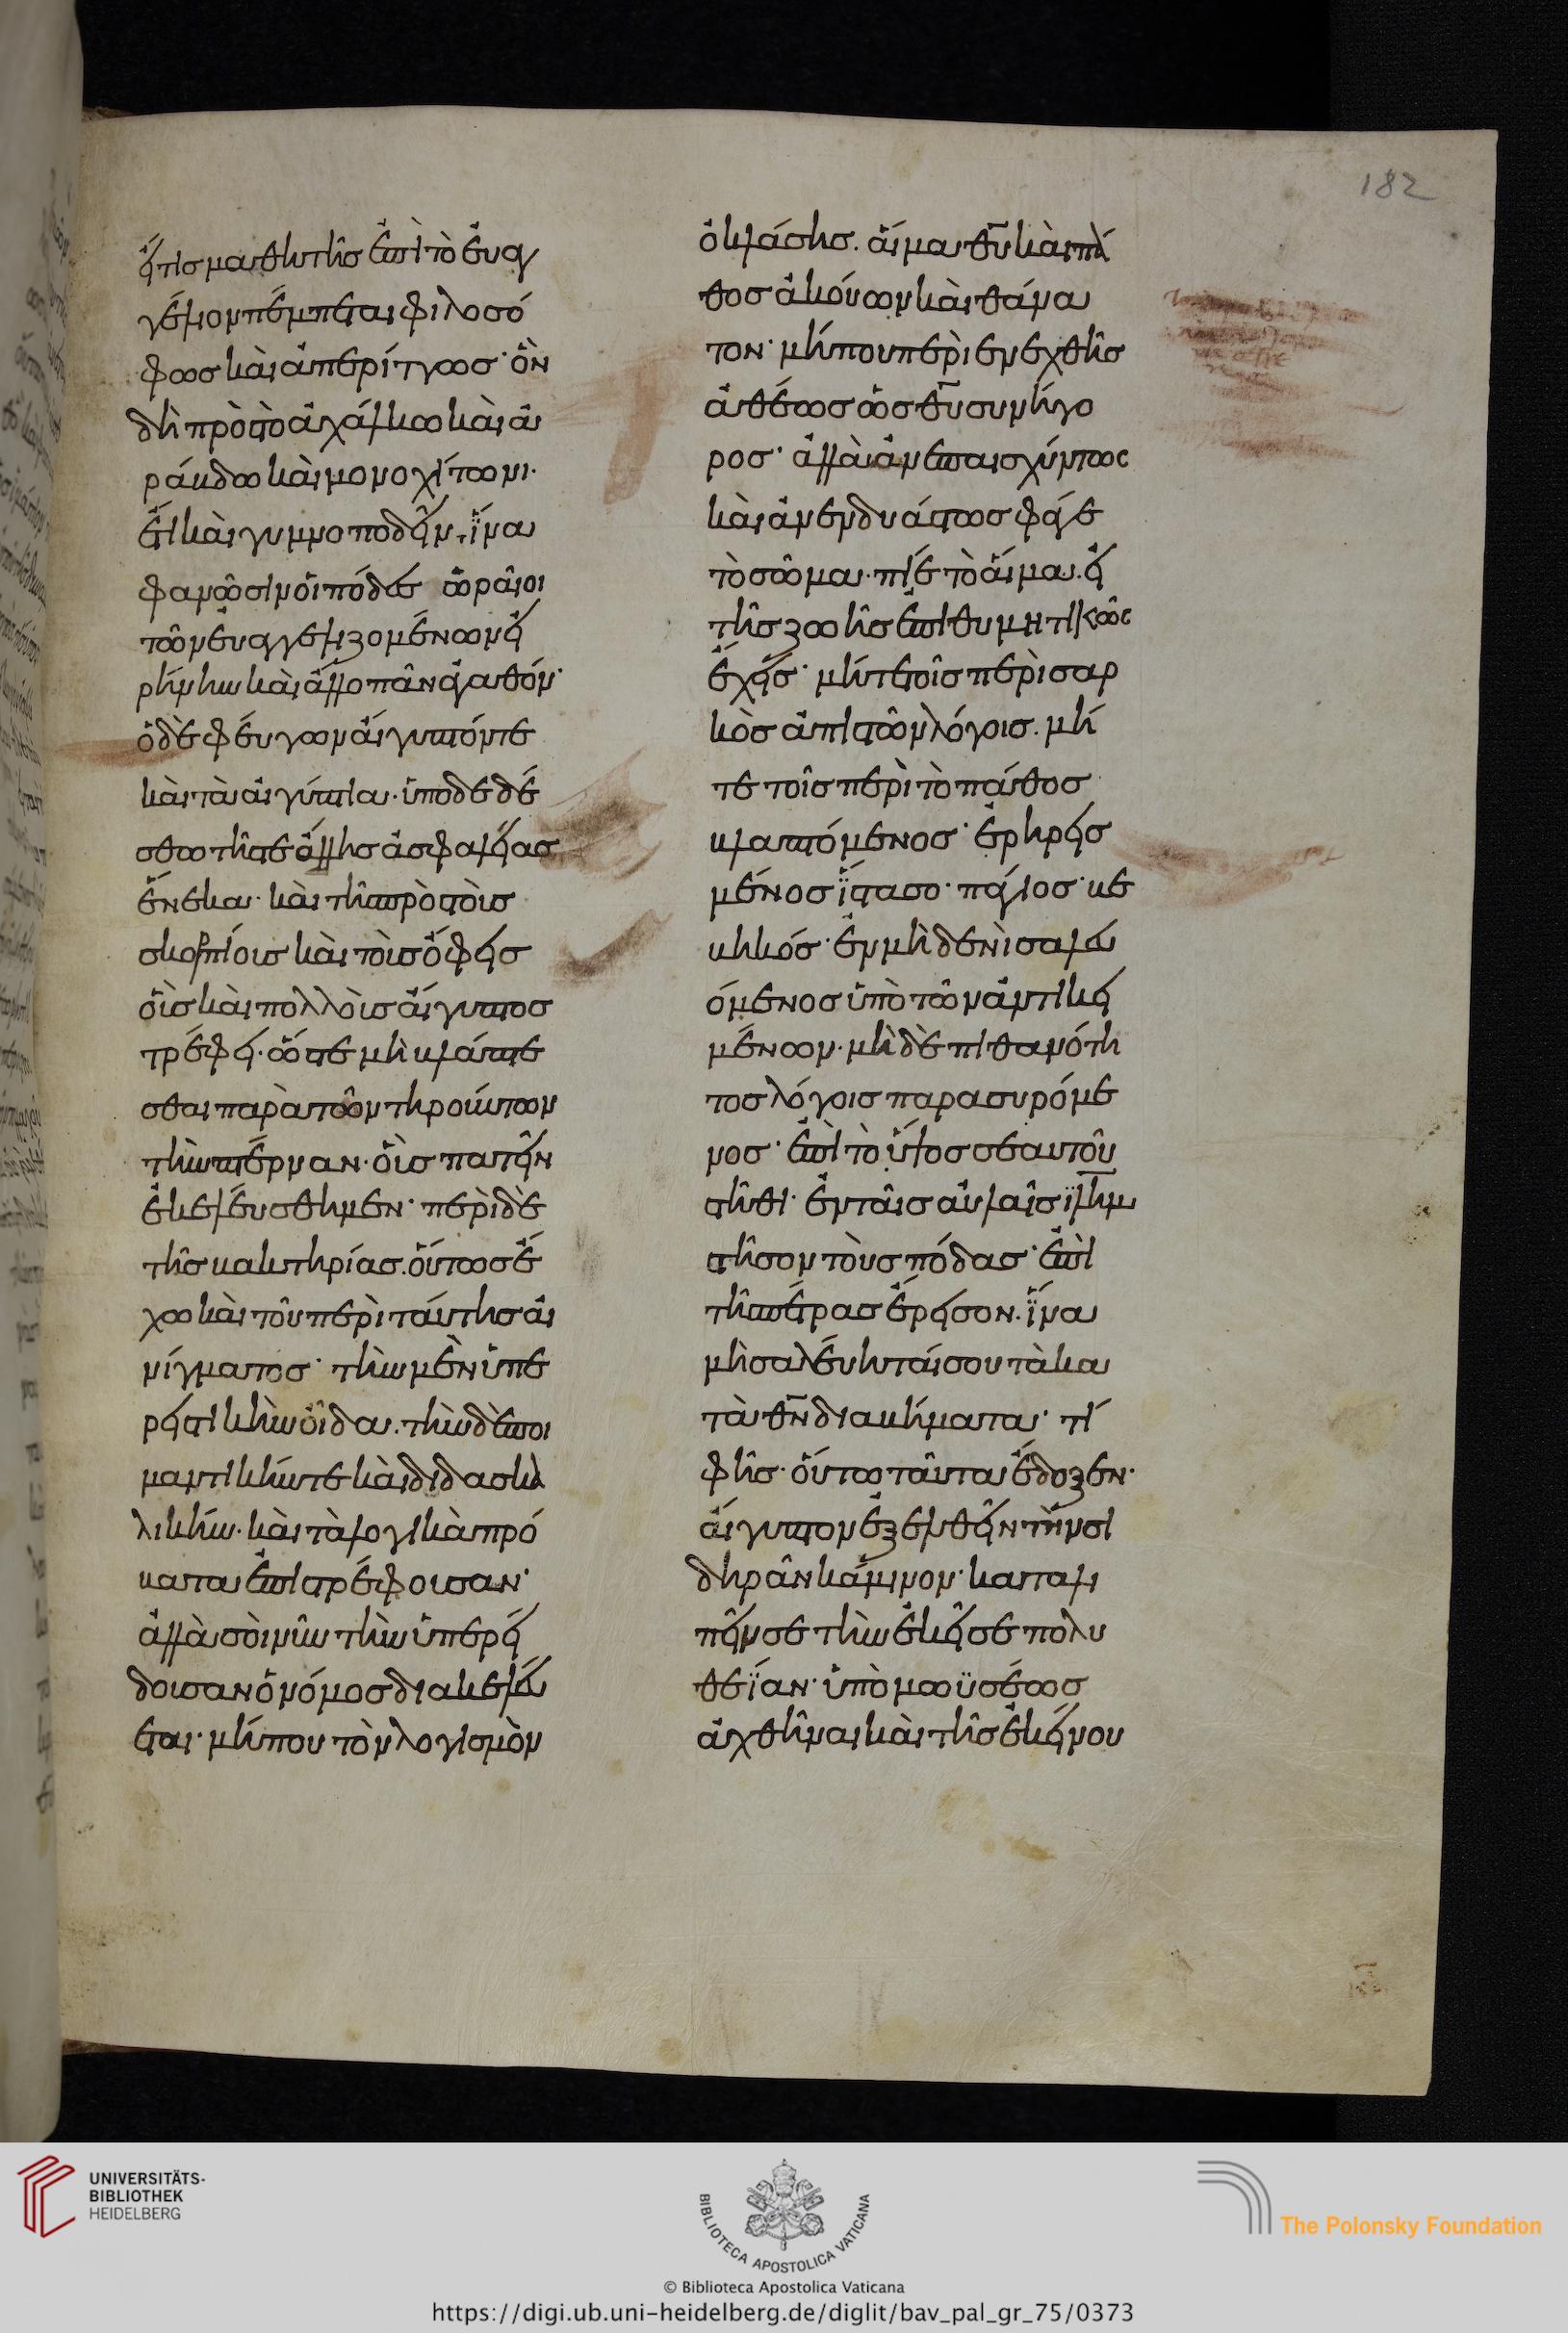 182
εἴ τις μαθητὴς ἐπὶ τὸ εὐαγ
γέλιον πέμπεται φιλοσό
φως καὶ ἀπερίττως· ὃν
δεῖ πρὸς τὸ ἀχάλκω καὶ ἀ
ράβδω καὶ μονοχίτωνι·
ἔτι καὶ γυμνοποδεῖν, ἵνα
φανῶσιν οἱ πόδες ὡραῖοι
τῶν εὐαγγελιζομένων εἰ
ρήνην καὶ ἄλλο πᾶν ἀγαθόν·
ὁ δὲ φεύγων αἴγυπτόν τε
καὶ τὰ αἰγύπτια· ὑποδεδέ
σθω τῆς τε ἄλλης ἀσφαλείας
ἕνεκα· καὶ τῆς πρὸς τοὺς
σκορπίους καὶ τοὺς ὄφεις
οἷς καὶ πολλοῖς αἴγυπτος
τρέφει· ὥστε μὴ βλάπτε
σθαι παρὰ τῶν τηρούντων
τὴν πτέρναν· οὓς πατεῖν
ἐκελεύσθημεν· περὶ δὲ
τῆς βακτηρίας. οὕτως ἔ
χω καὶ τοῦ περὶ ταύτης αἰ
νίγματος· τὴν μὲν ὑπε
ρειστικὴν οἶδα. τὴν δὲ ποι
μαντικήν τε καὶ διδασκα
λικήν· καὶ τὰ λογικὰ πρό
βατα ἐπιστρέφουσαν·
ἀλλὰ σοὶ νῦν τὴν ὑπερεί
δουσαν ὁ νόμος διακελεύ
εται· μή που τὸν λογισμὸν
ὀκλάσης. αἷμα θῦ καὶ πά
θος ἀκούων καὶ θάνα
τον· μή που περιενεχθῆς
ἀθέως ὡς θῦ συνήγο
ρος· ἀλλὰ ἀνεπαισχύντως
καὶ ἀνενδυάστως φάγε
τὸ σῶμα· πίε τὸ αἷμα. εἰ
τῆς ζωῆς ἐπιθυμητικῶς
ἔχεις· μήτε τοῖς περὶ σαρ
κὸς ἀπιστῶν λόγοις. μή
τε τοῖς περὶ τὸ πάθος
βλαπτόμενος· ἐρηρεισ
μένος ἵστασο· πάγιος· βε
βηκός· ἐν μηδενὶ σαλευ
όμενος ὑπὸ τῶν ἀντικει
μένων· μὴ δὲ πιθανότη
τος λόγοις παρασυρόμε
νος· ἐπὶ τὸ ὕψος σεαυτοῦ
στῆθι· ἐν ταῖς αὐλαῖς ϊλημ
στῆσον τοὺς πόδας· ἐπὶ
τῆς πέτρας ἔρεισον. ἵνα
μὴ σαλεύηταί σου τὰ κα
τὰ θν διαβήματα· τί
φῆς· οὕτω ταῦτα ἔδοξεν·
αἴγυπτον ἐξελθεῖν τὴν σι
δηρᾶν κάμινον· καταλι
πεῖν σε τὴν ἐκεῖσε πολυ
θεΐαν· ὑπὸ μωϋσέως
ἀχθῆναι καὶ τῆς ἐκείνου
UNIVERSITÄTS-
BIBLIOTHEK
HEIDELBERG
BIBLIOTECA APOSTOLICA VATICANA
The Polonsky Foundation
© Biblioteca Apostolica Vaticana
https://digi.ub.uni-heidelberg.de/diglit/bav_pal_gr_75/0373